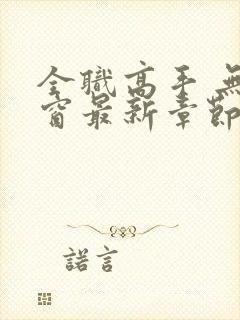 全職高手 無
窗最新章節
諾言